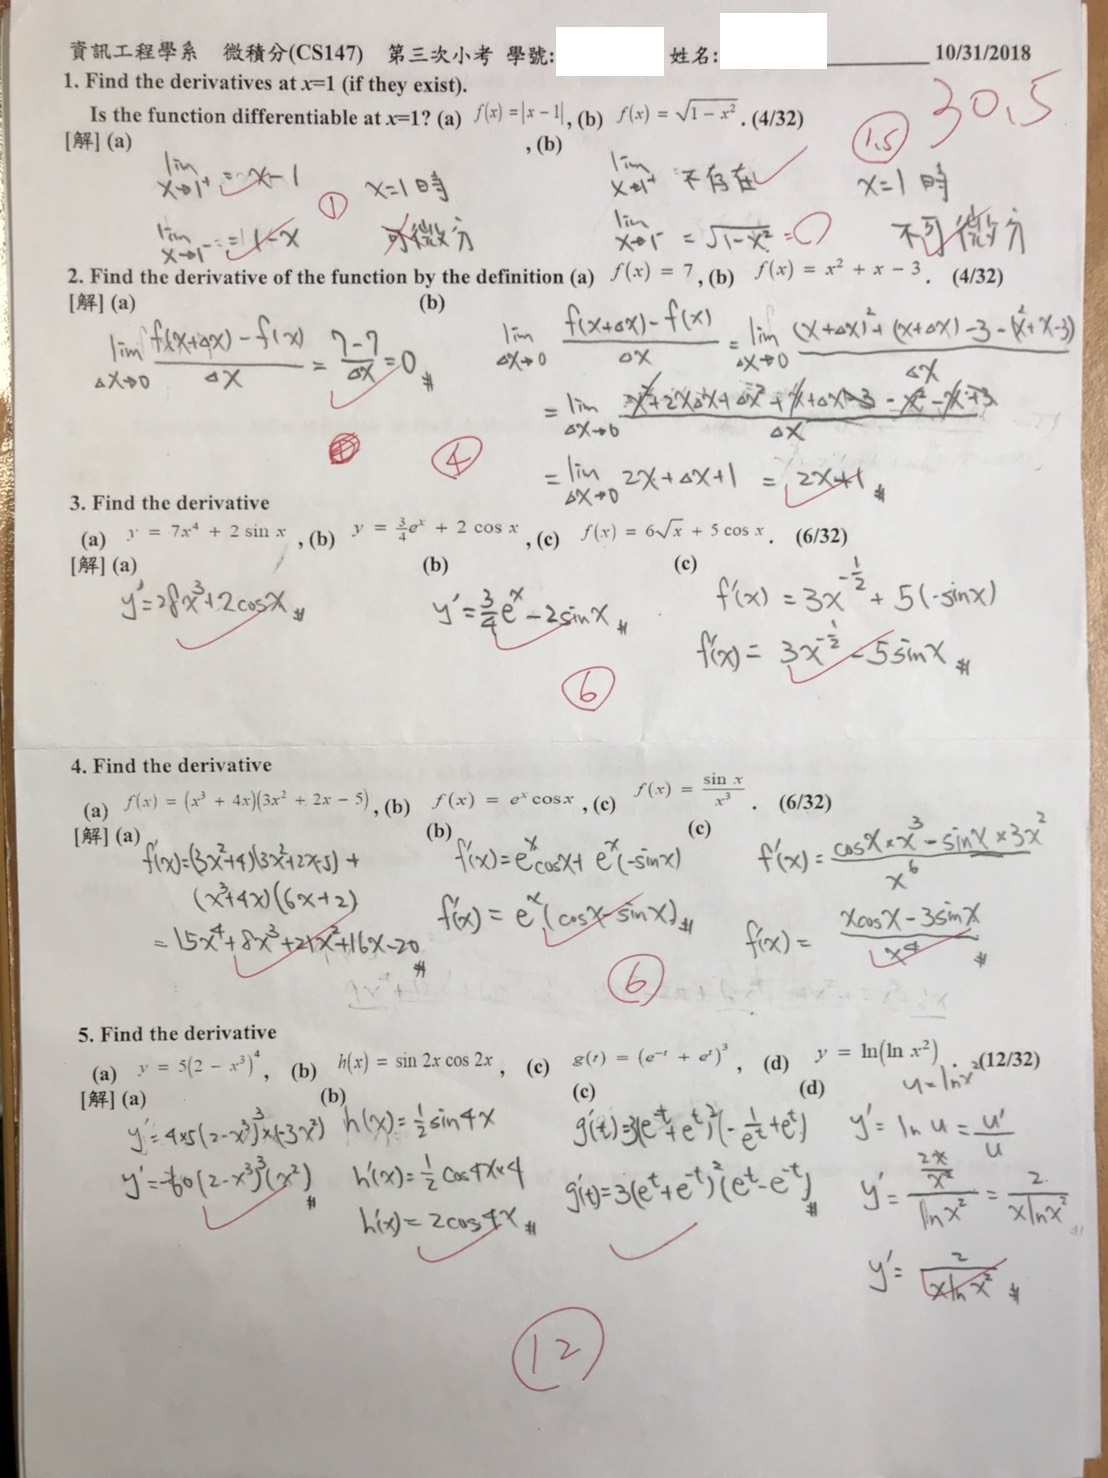 資訊工程學系 微積分(CS147) 第三次小考 學號: 姓名: 10/31/2018
30.5
1. Find the derivatives at x=1 (if they exist).
Is the function differentiable at x=1? (a) f(x) = |x − 1|, (b) f(x) = √(1 − x²). (4/32)
1.5
[解] (a) , (b)
lim x→1⁺ = x−1 x=1時 lim x→1⁺ 不存在 x=1時
1
lim x→1⁻ = 1−x 可微分 lim x→1⁻ = √(1−x²) = 0 不可微分
2. Find the derivative of the function by the definition (a) f(x) = 7, (b) f(x) = x² + x − 3. (4/32)
[解] (a) (b)
lim Δx→0 (f(x+Δx) − f(x))/Δx = (7−7)/Δx = 0 #
lim Δx→0 (f(x+Δx) − f(x))/Δx = lim Δx→0 ((x+Δx)² + (x+Δx) −3 −(x²+x−3))/Δx
= lim Δx→0 (x²+2xΔx+Δx²+x+Δx−3 −x²−x+3)/Δx
4
= lim Δx→0 2x+Δx+1 = 2x+1 #
3. Find the derivative
(a) y = 7x⁴ + 2 sin x, (b) y = ¾eˣ + 2 cos x, (c) f(x) = 6√x + 5 cos x. (6/32)
[解] (a) (b) (c)
y'=28x³+2cosx #
y'=¾eˣ−2sinx #
f'(x) = 3x^(-1/2) + 5(−sinx)
f'(x) = 3x^(-1/2) − 5sinx #
6
4. Find the derivative
(a) f(x) = (x³ + 4x)(3x² + 2x − 5), (b) f(x) = eˣ cosx, (c) f(x) = sin x / x³. (6/32)
[解] (a) (b) (c)
f'(x)=(3x²+4)(3x²+2x−5) +
(x³+4x)(6x+2)
= 15x⁴+8x³+21x²+16x−20 #
f'(x)=eˣcosx+eˣ(−sinx)
f'(x) = eˣ(cosx−sinx) #
f'(x) = (cosx×x³ − sinx×3x²)/x⁶
f'(x) = (xcosx − 3sinx)/x⁴ #
6
5. Find the derivative
(a) y = 5(2 − x³)⁴, (b) h(x) = sin 2x cos 2x, (c) g(t) = (e⁻ᵗ + eᵗ)³, (d) y = ln(ln x²). (12/32)
[解] (a) (b) (c) (d) u=lnx²
y'=4×5(2−x³)³×(−3x²)
y'=−60(2−x³)³(x²) #
h(x)=½sin4x
h'(x)=½cos4x×4
h'(x)=2cos4x #
g'(t)=3(e⁻ᵗ+eᵗ)²(−1/eᵗ+eᵗ)
g'(t)=3(eᵗ+e⁻ᵗ)²(eᵗ−e⁻ᵗ) #
y'= ln u = u'/u
y'= (2x/x²)/lnx² = 2/(xlnx²)
y'= 2/(xlnx²) #
12